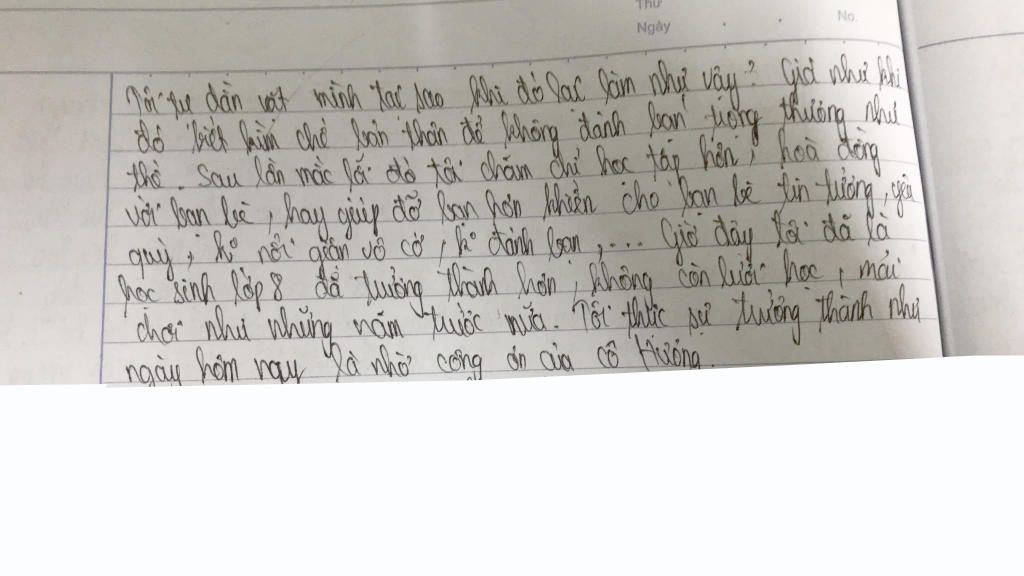 Thứ
Ngày
No.
Tôi tự dằn vặt mình tại sao khi đó lại làm như vậy? Giá như khi
đó biết kìm chế bản thân để không đánh bạn trọng thương như
thế. Sau lần mắc lỗi đó tôi chăm chỉ học tập hơn, hoà đồng
với bạn bè, hay giúp đỡ bạn hơn khiến cho bạn bè tin tưởng, yêu
quý, k° nổi giận vô cớ, k° đánh bạn,... Giờ đây tôi đã là
học sinh lớp 8 đã trưởng thành hơn, không còn lười học, mải
chơi như những năm trước nữa. Tôi thực sự trưởng thành như
ngày hôm nay là nhờ công ơn của cô Hương.